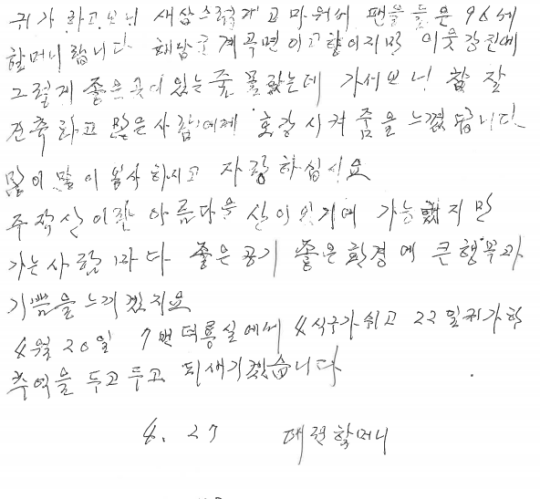 귀가 하고보니 새삼스럽게 고마워서 팬을 들은 96세
할머니랍니다 해남군 계곡면이 고향이지만 이웃 강진에
그렇게 좋은곳이 있는줄 몰랐는데 가서보니 참 잘
건축하고 많은사람에게 홍길 시켜 줌을 느꼈답니다
많이 많이 봉사 하시고 자랑하십시요
주작산이란 아름다운 산이 있기에 가능했지만
가는사람마다 좋은공기 좋은환경에 큰행복과
기쁨을 느끼겠지요
4월 20일 7번 덕룡실에서 4식구가 쉬고 22일 귀가한
추억을 두고두고 되새기겠습니다
4. 27 대전할머니